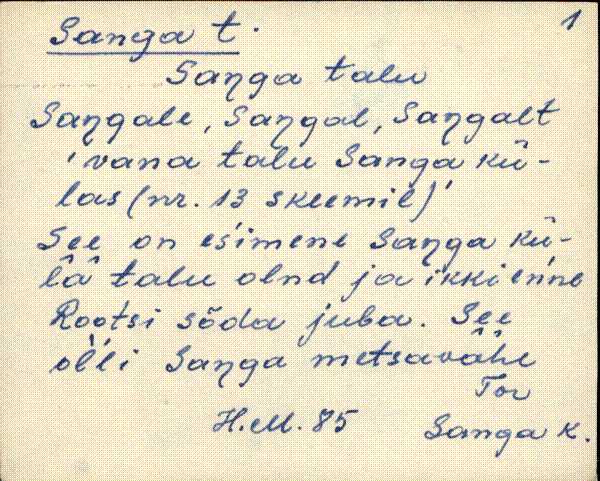 1
Sanga t.
Saŋga talu
Saŋgale, Saŋgal, Saŋgalt
'vana talu Sanga kü-
las (nr. 13 skeemil)'
See on eśimene Saŋga kü-
lä̂ talu olnd ja ikki enne
Rootśi sõda juba. See
olĺi Saŋga metsavahe
Tor
H.M. 85 Sanga k.